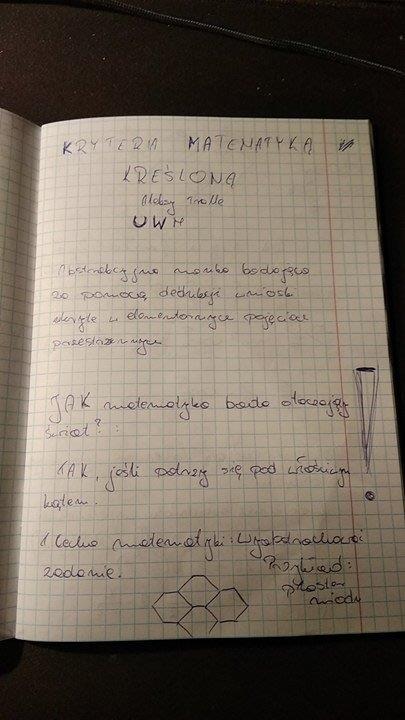 KRYTERIA MATEMATYKĄ
KREŚLONA
UWM
Abstrakcyjna nauka badająca
za pomocą dedukcji wnioski
ukryte w elementarnych pojęciach
przestrzennych
JAK matematyka bada otaczający
świat? :
TAK, jeśli patrzy się pod właściwym
kątem.
1 Cecha matematyki: Wyabstrachować
zadanie.
Przykład:
plaster
miodu
!